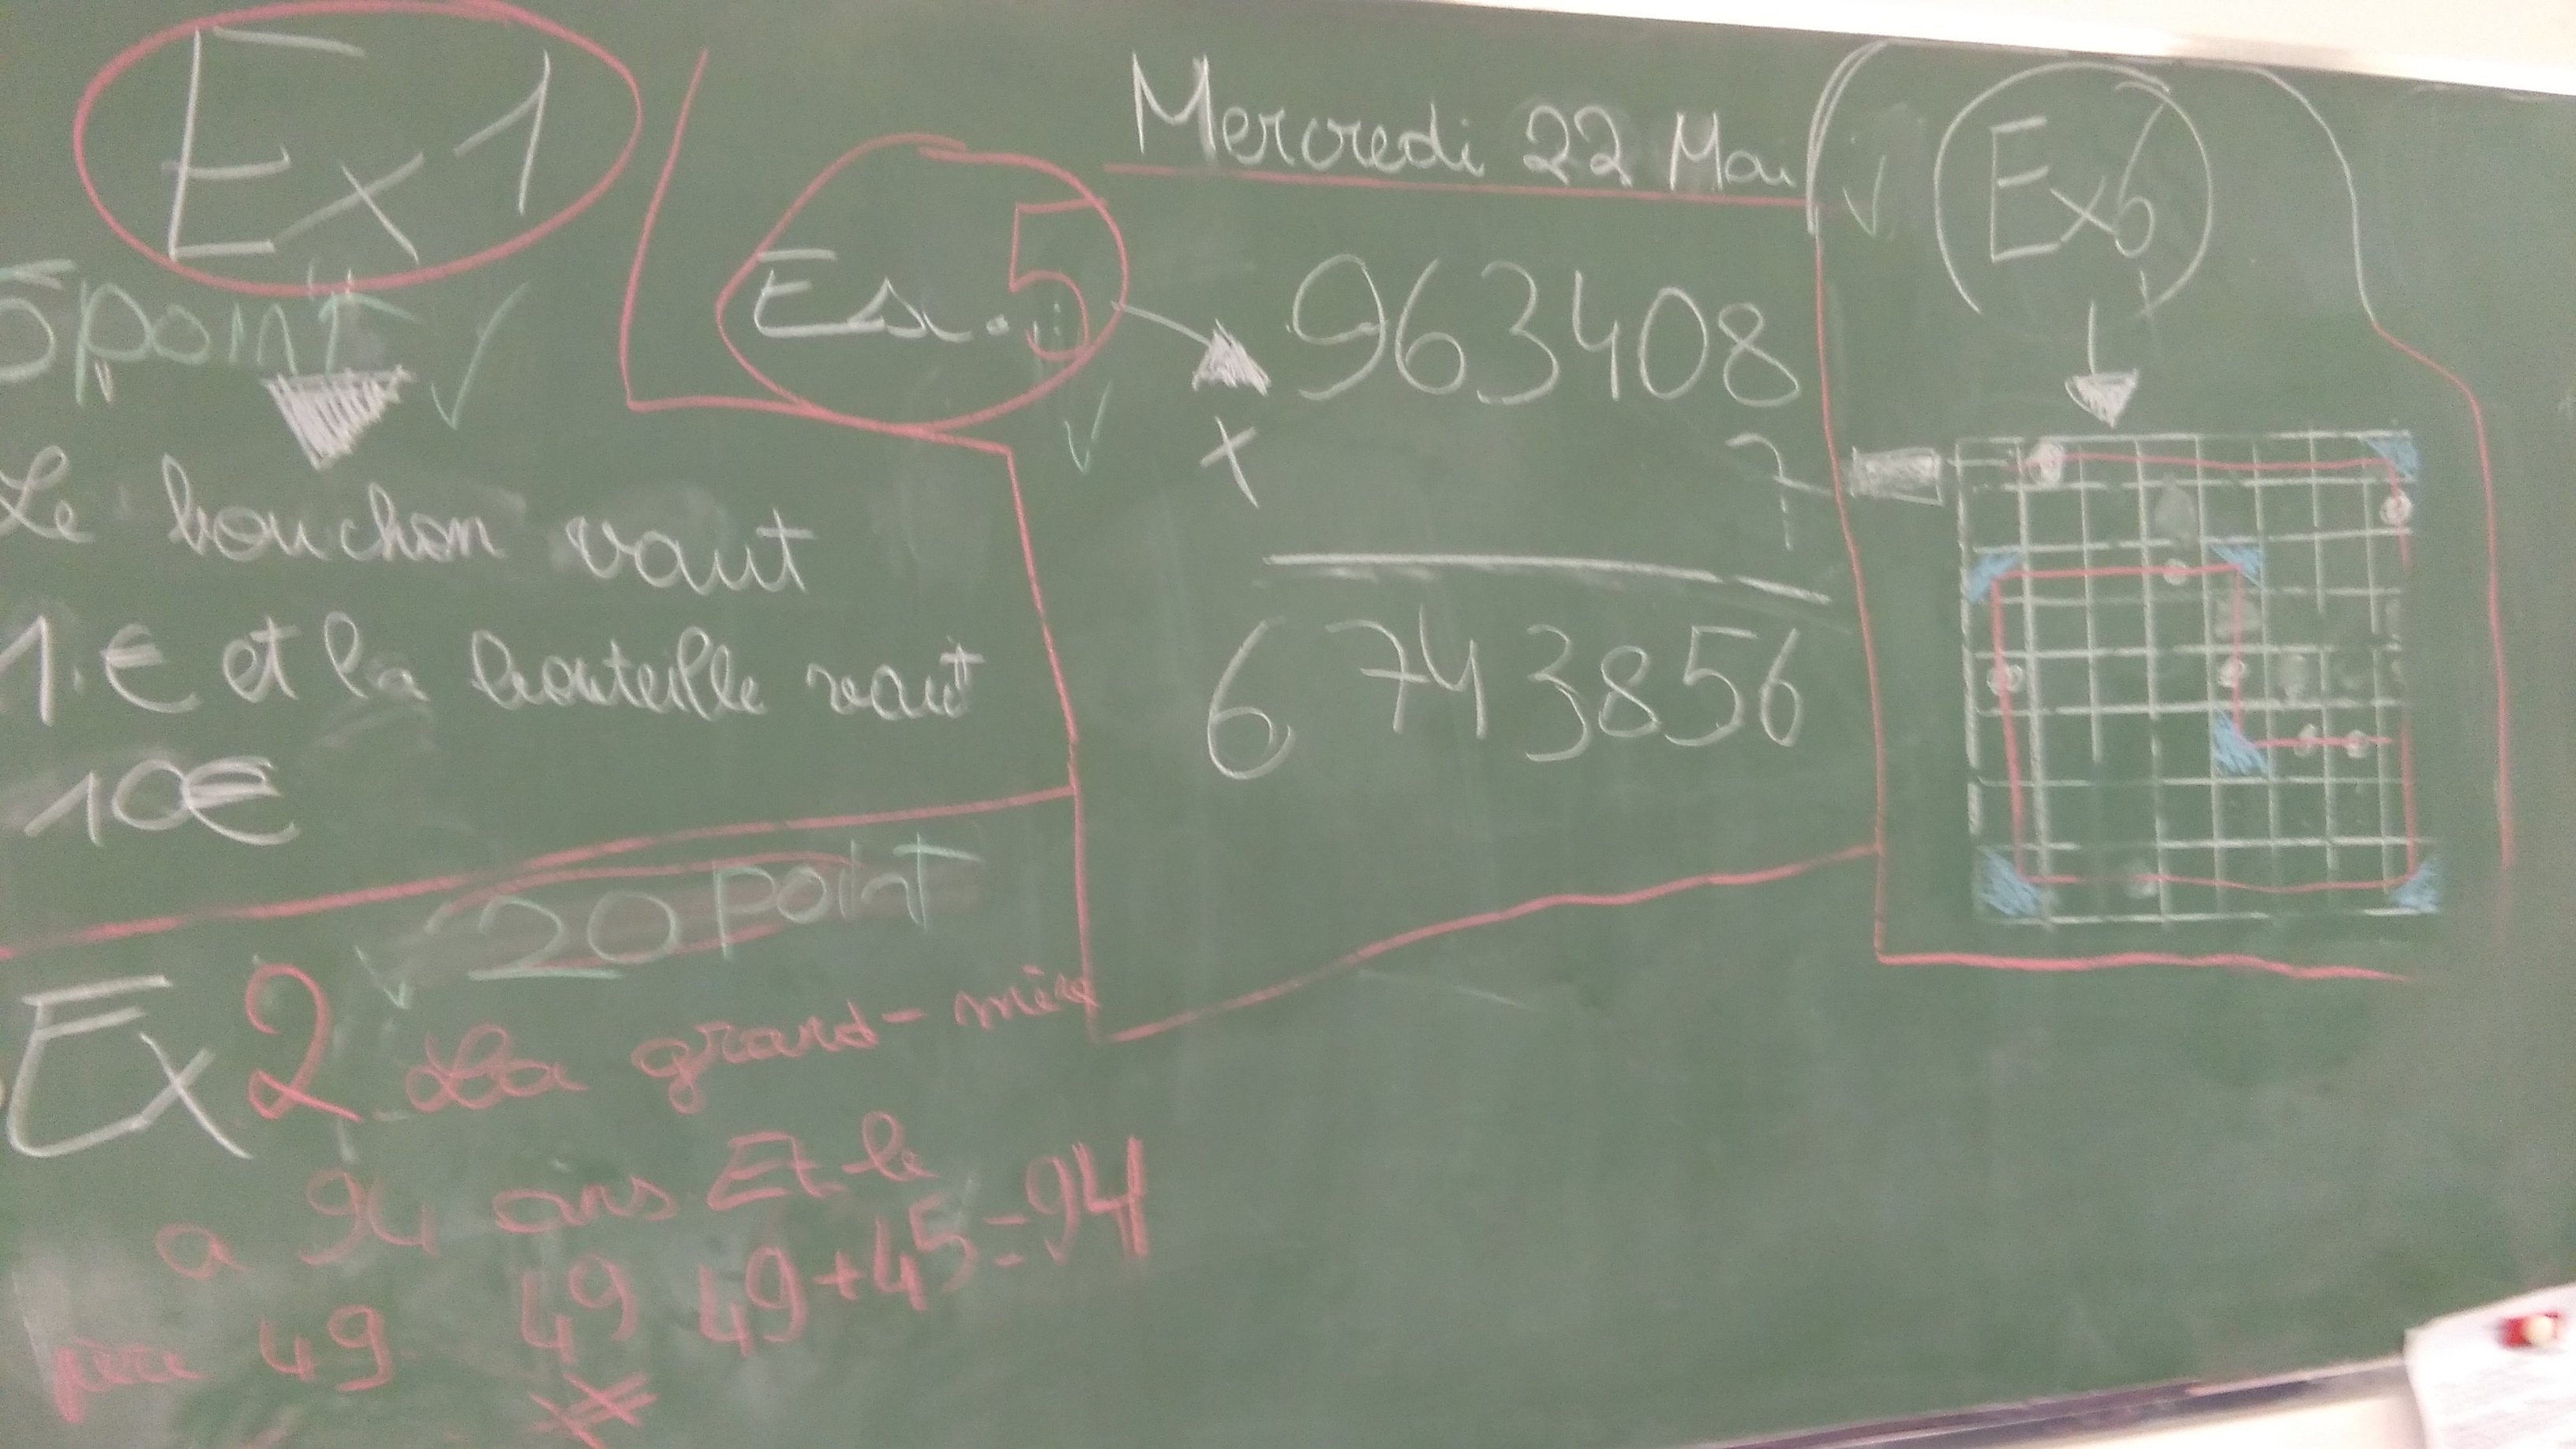 Ex 1
5 point
Le bouchon vaut
1.€ et la bouteille vaut
10€
20 point
Ex 2 La grand-mère
a 94 ans Et le
père 49 49 49+45=94
Mercredi 22 Mai
Ex.5
963408
x 7
6743856
Ex6